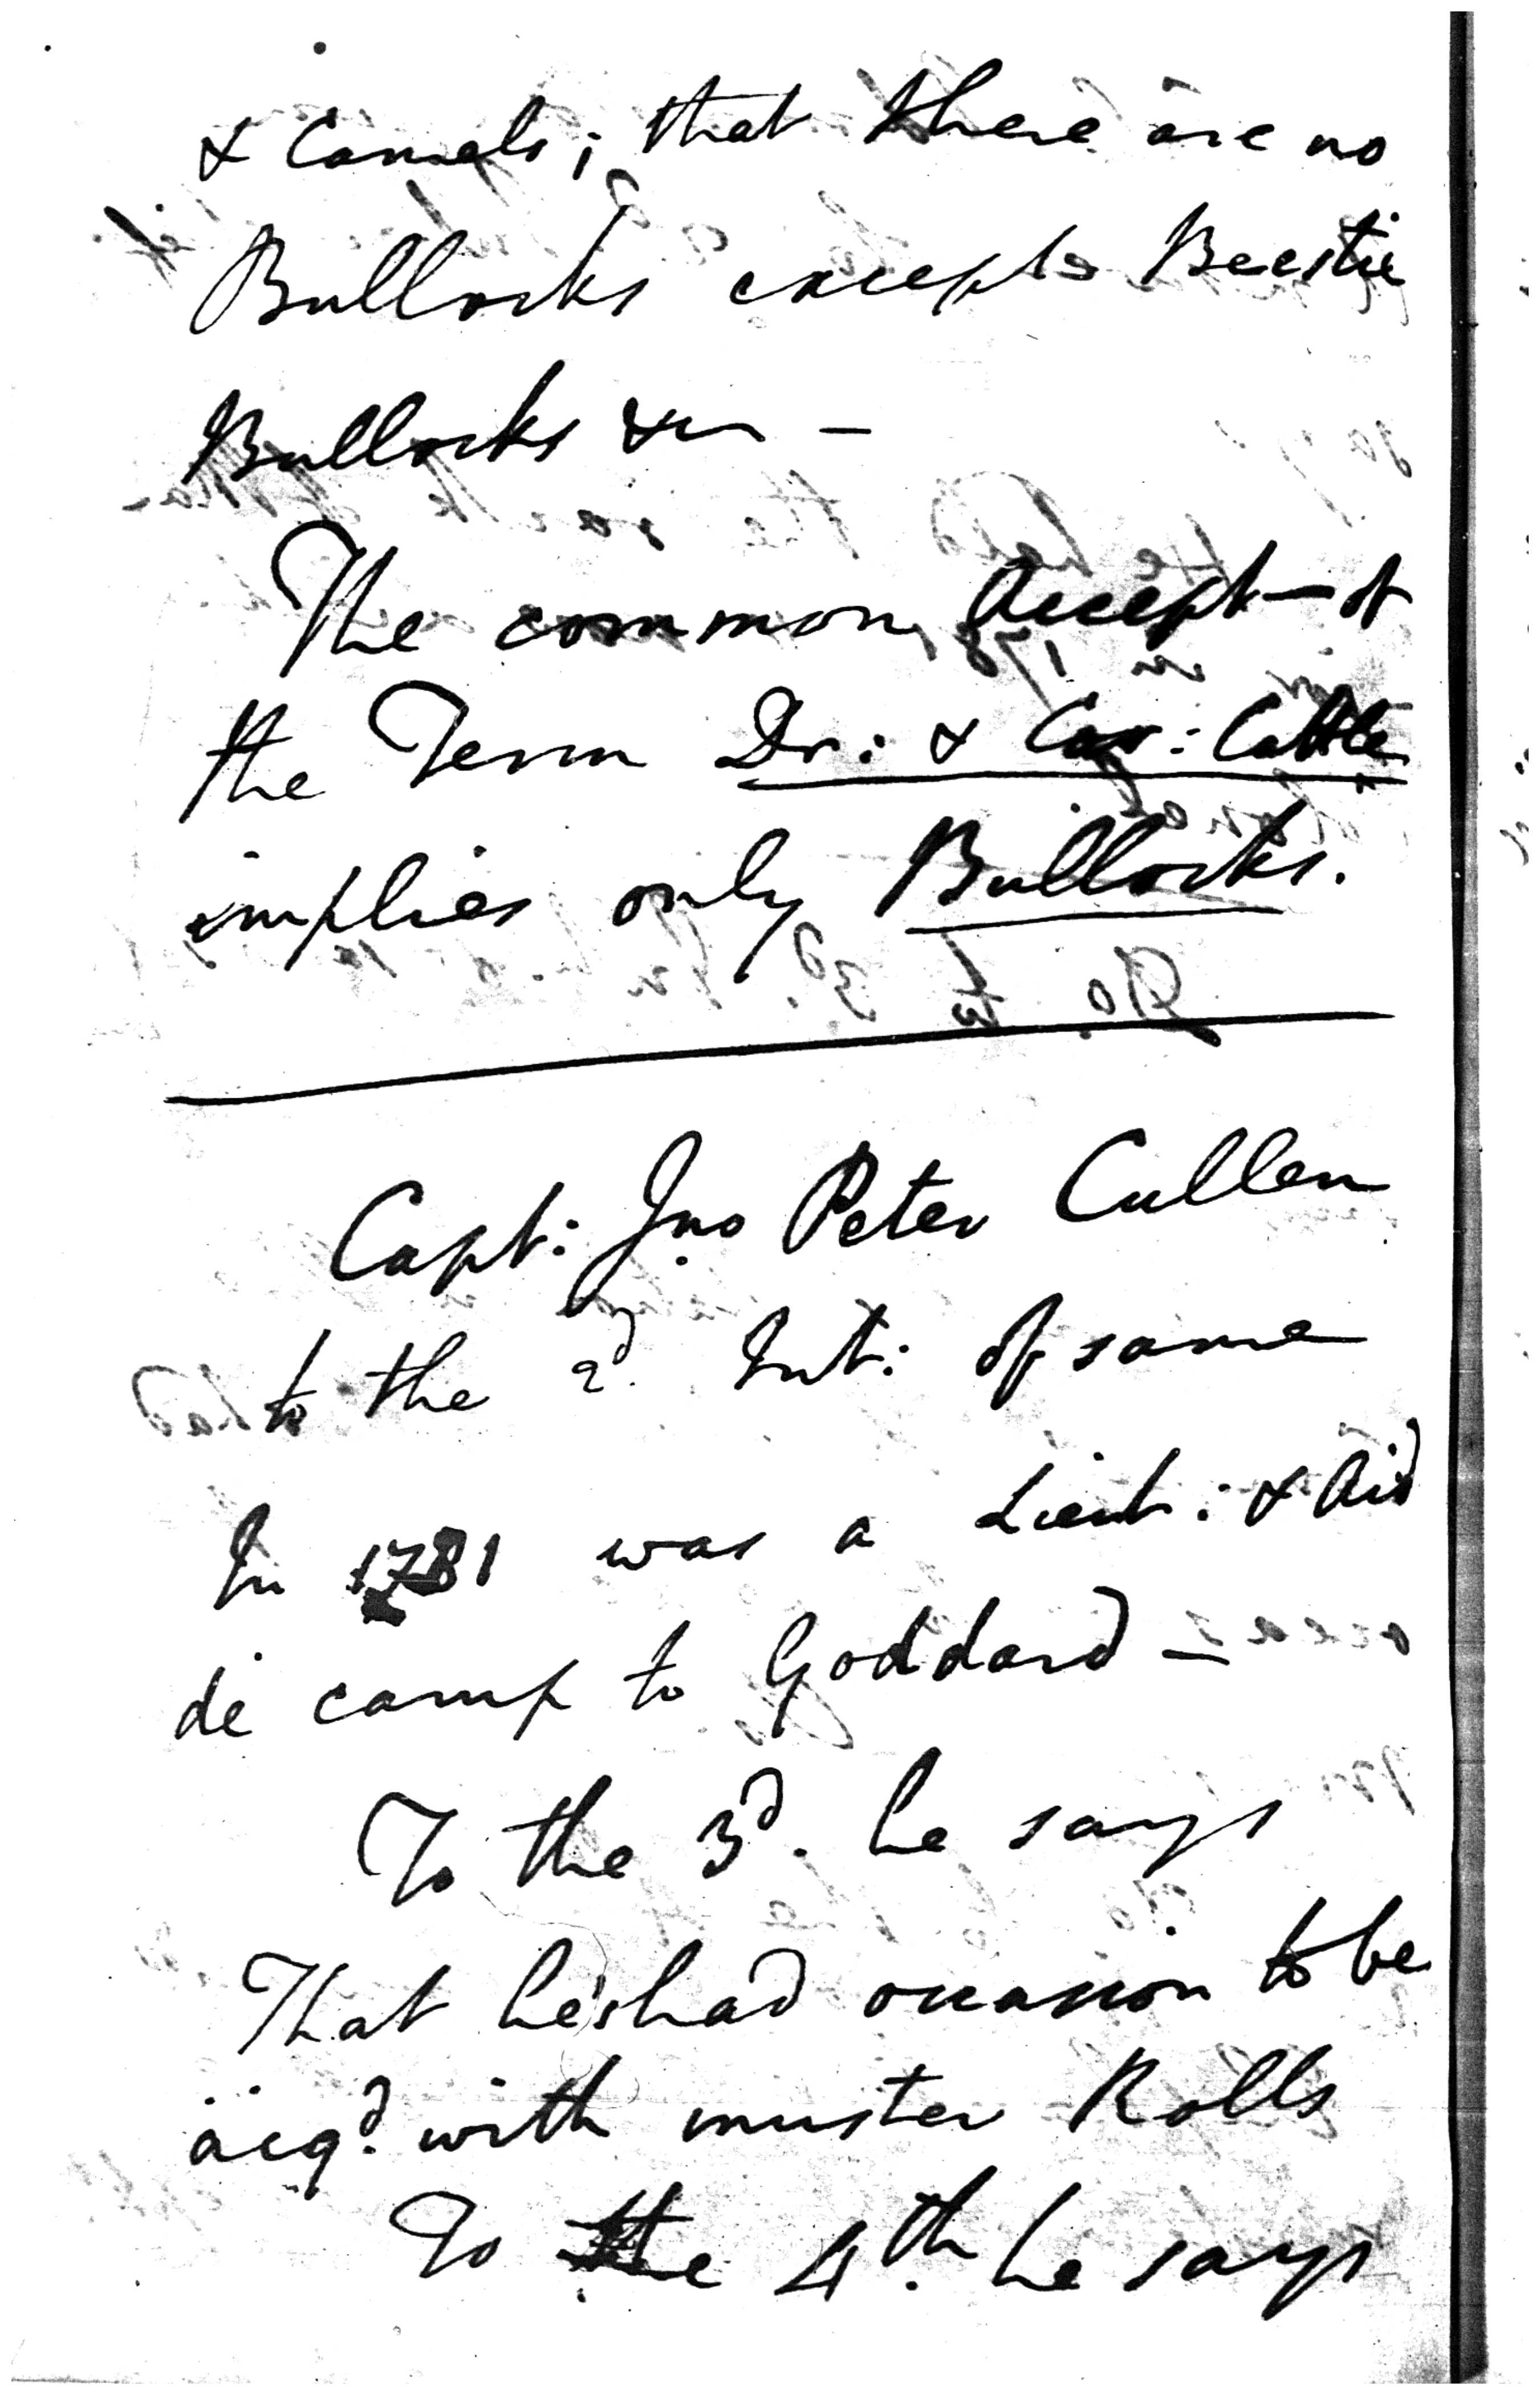 & Camels; that there are no
Bullocks except Beestie
Bullocks &ca —
The common Accept— of
the Term Dr: & Car: Cattle
implies only Bullocks.
Capt: Jno Peter Cullen
to the 2d. Int: of same
In 1781 was a Lieut: & Aid
de camp to Goddard —
To the 3d. he says
That he had occasion to be
acqd. with muster Rolls
To the 4th. he says